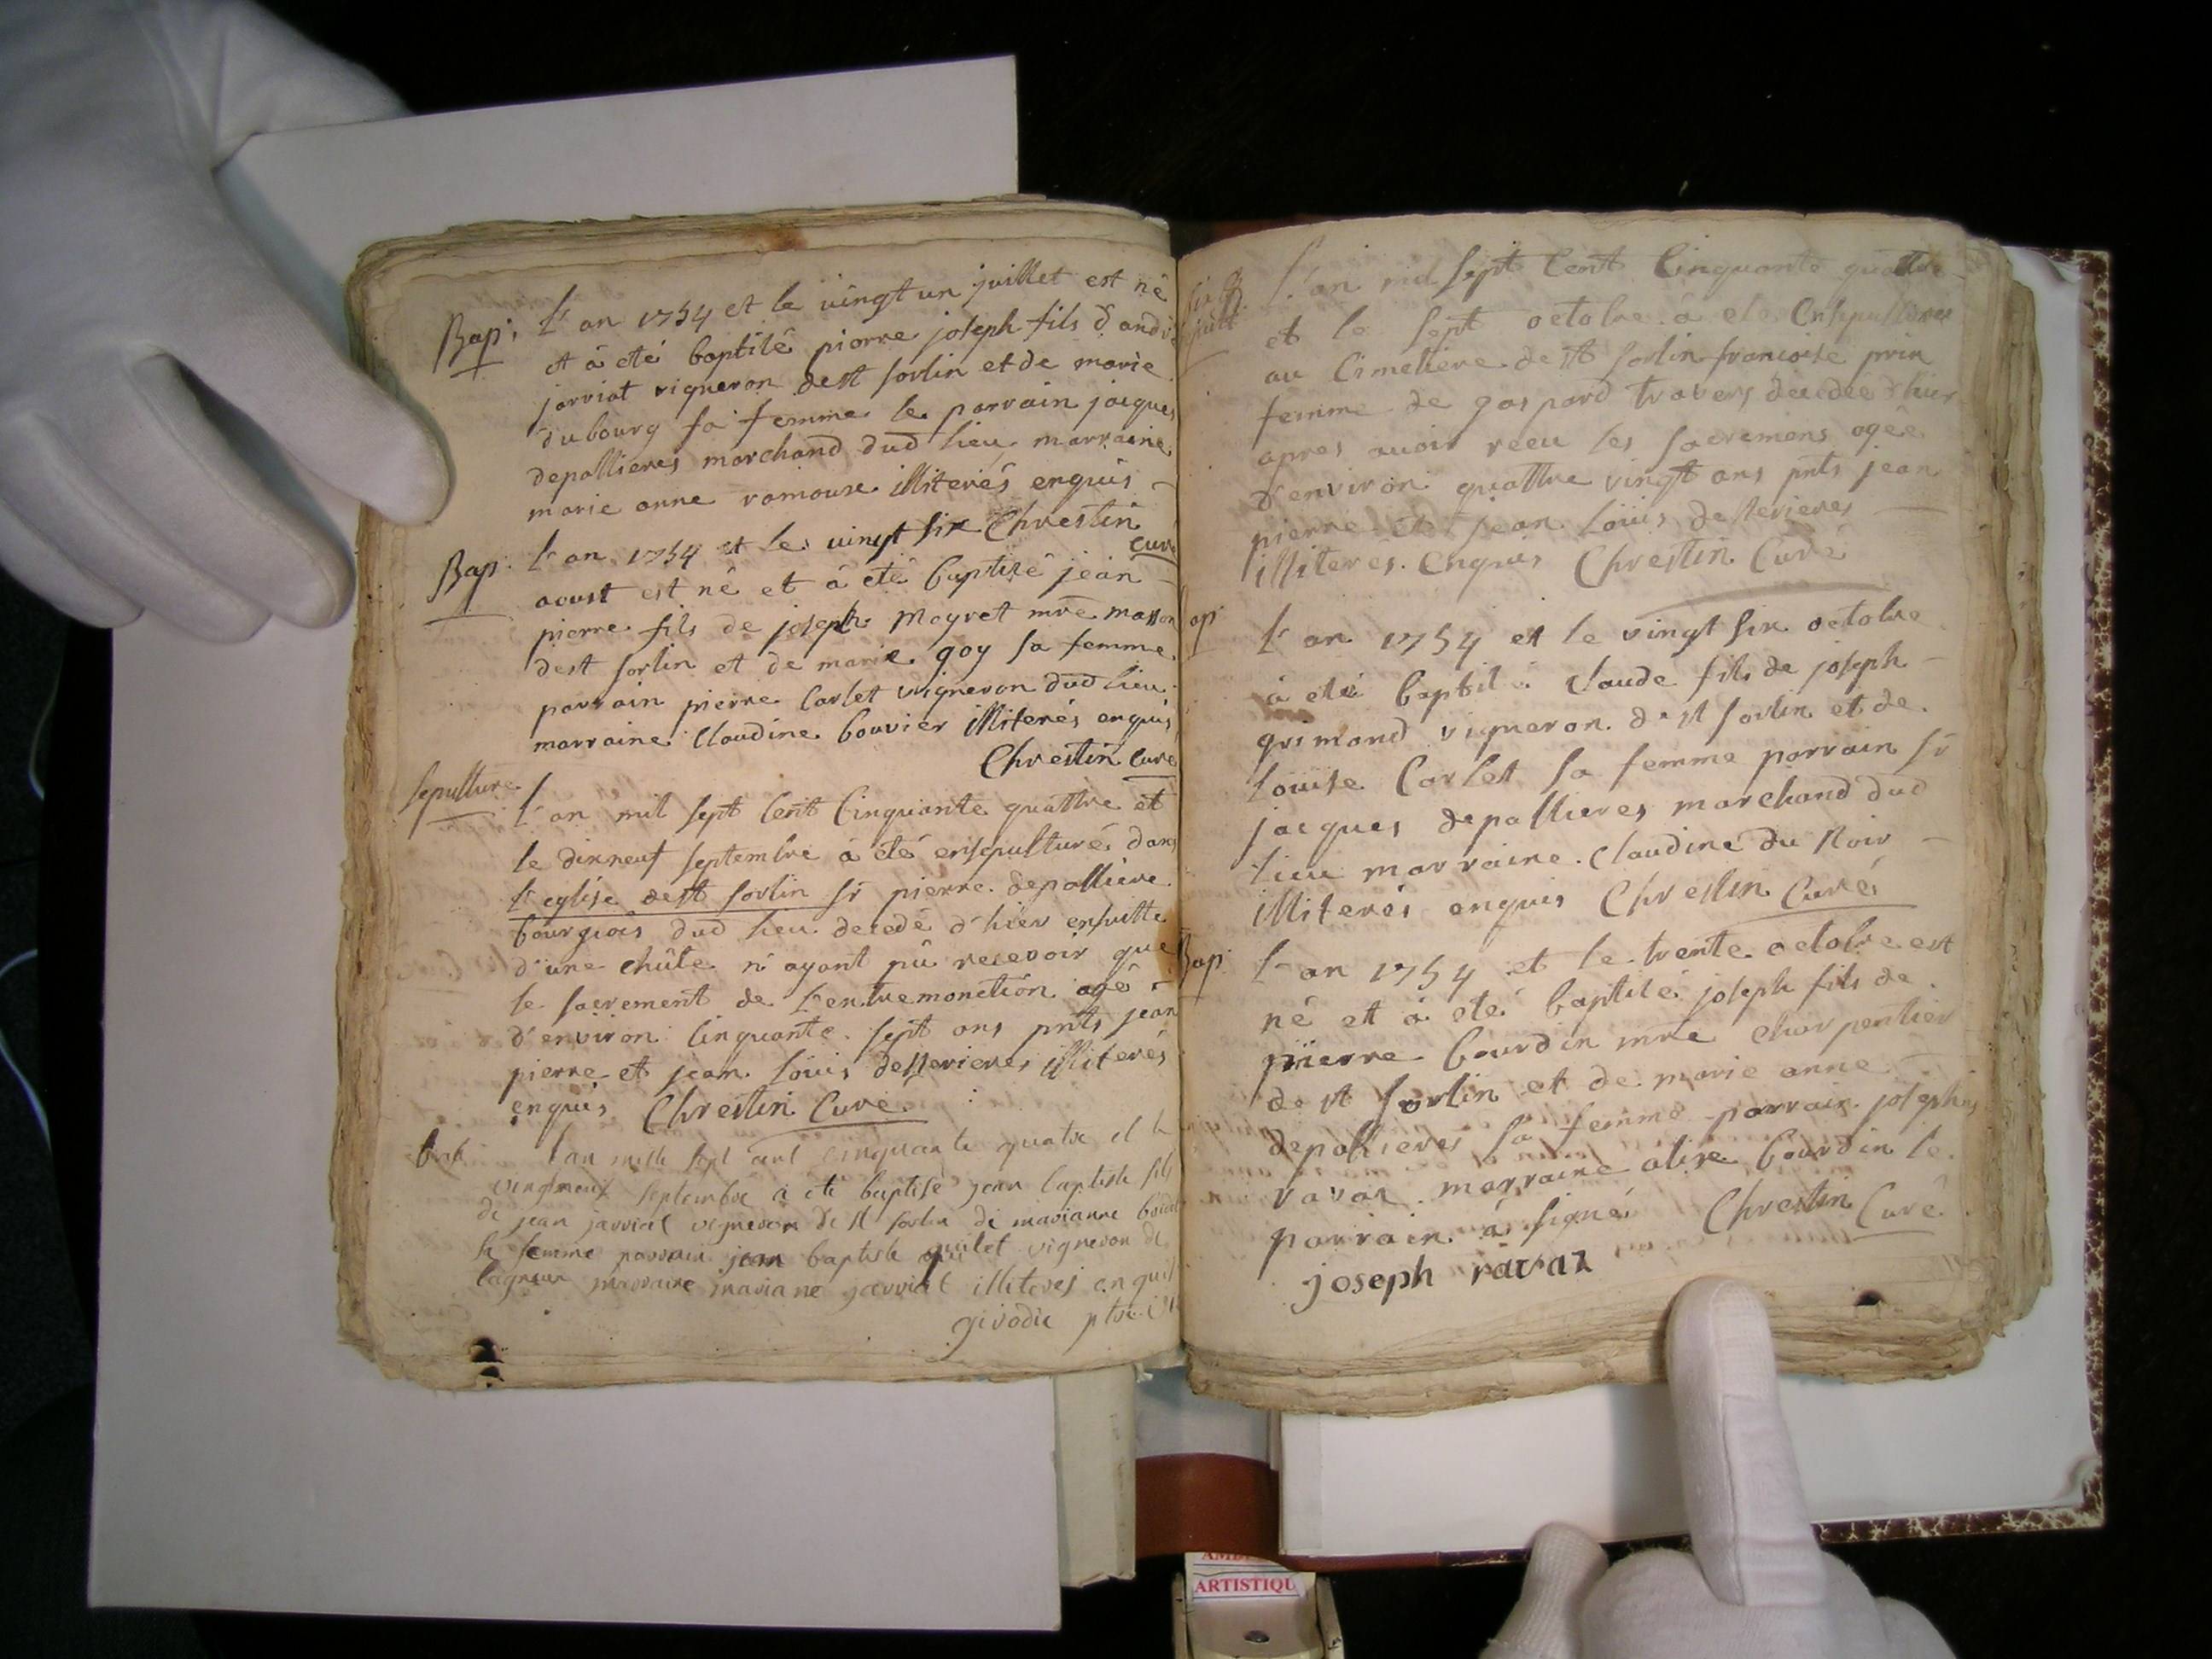 Bap: L'an 1754 et le vingt un juillet est né
et à eté baptisé pierre joseph fils d'andré
jarriat vigneron de st sorlin et de marie
dubourg sa femme le parrain jacques
depallieres marchand dud lieu, marraine
marie anne ramouse illiterés enquis –
Chrestin
curé
Bap: L'an 1754 et le vingt six
aoust est né et à eté baptisé jean –
pierre fils de joseph Meyret mre masson
de st sorlin et de marie goy sa femme.
parrain pierre Carlet vigneron dud lieu
marraine Claudine bouvier illiterés enquis
Chrestin Curé
Sepulture
L'an mil sept Cent Cinquante quattre et
le dixneuf septembre à été ensepulturé dans
l'eglise de st sorlin sr pierre depalliere
bourgiois dud lieu decedé d'hier ensuitte
d'une chûte n'ayant pû recevoir que
le sacrement de L'entremonction agé –
d'environ Cinquante sept ans pnts jean
pierre et jean Loüis desserieres illiterés
enquis Chrestin Curé
lan mille sept cent cinquante quatre et le
vingtneuf septembre à été baptisé jean baptiste fils
de jean jarriat vigneron de st sorlin de marianne
sa femme parrain jean baptiste quilet vigneron de
lagneu marraine mariane jarriat illiterés enquis
girodie ptre
L'an mil sept Cent Cinquante quattre –
et le sept octobre à eté Ensepulturée
au Cimetiere de st sorlin francoise prin
femme de gaspard travers decedée d'hier
apres avoir receu les sacremens agée
d'environ quattre vingt ans pnts jean
pierre et jean Loüis desserieres –
illiteres Enquis Chrestin Curé
Bap:
L'an 1754 et le vingt six octobre
à eté baptisé Claude fils de joseph –
grimond vigneron de st sorlin et de
Loüise Carlet sa femme parrain sr
jacques depallieres marchand dud
lieu marraine Claudine du Noir –
illiterés enquis Chrestin Curé
Bap:
L'an 1754 et le trente octobre est
né et à eté baptisé joseph fils de
pierre bourdin mre charpentier
de st sorlin et de marie anne –
depallieres sa femme parrain joseph
ravaz marraine alise bourdin le
parrain à signé Chrestin Curé
joseph ravaz
ARTISTIQU